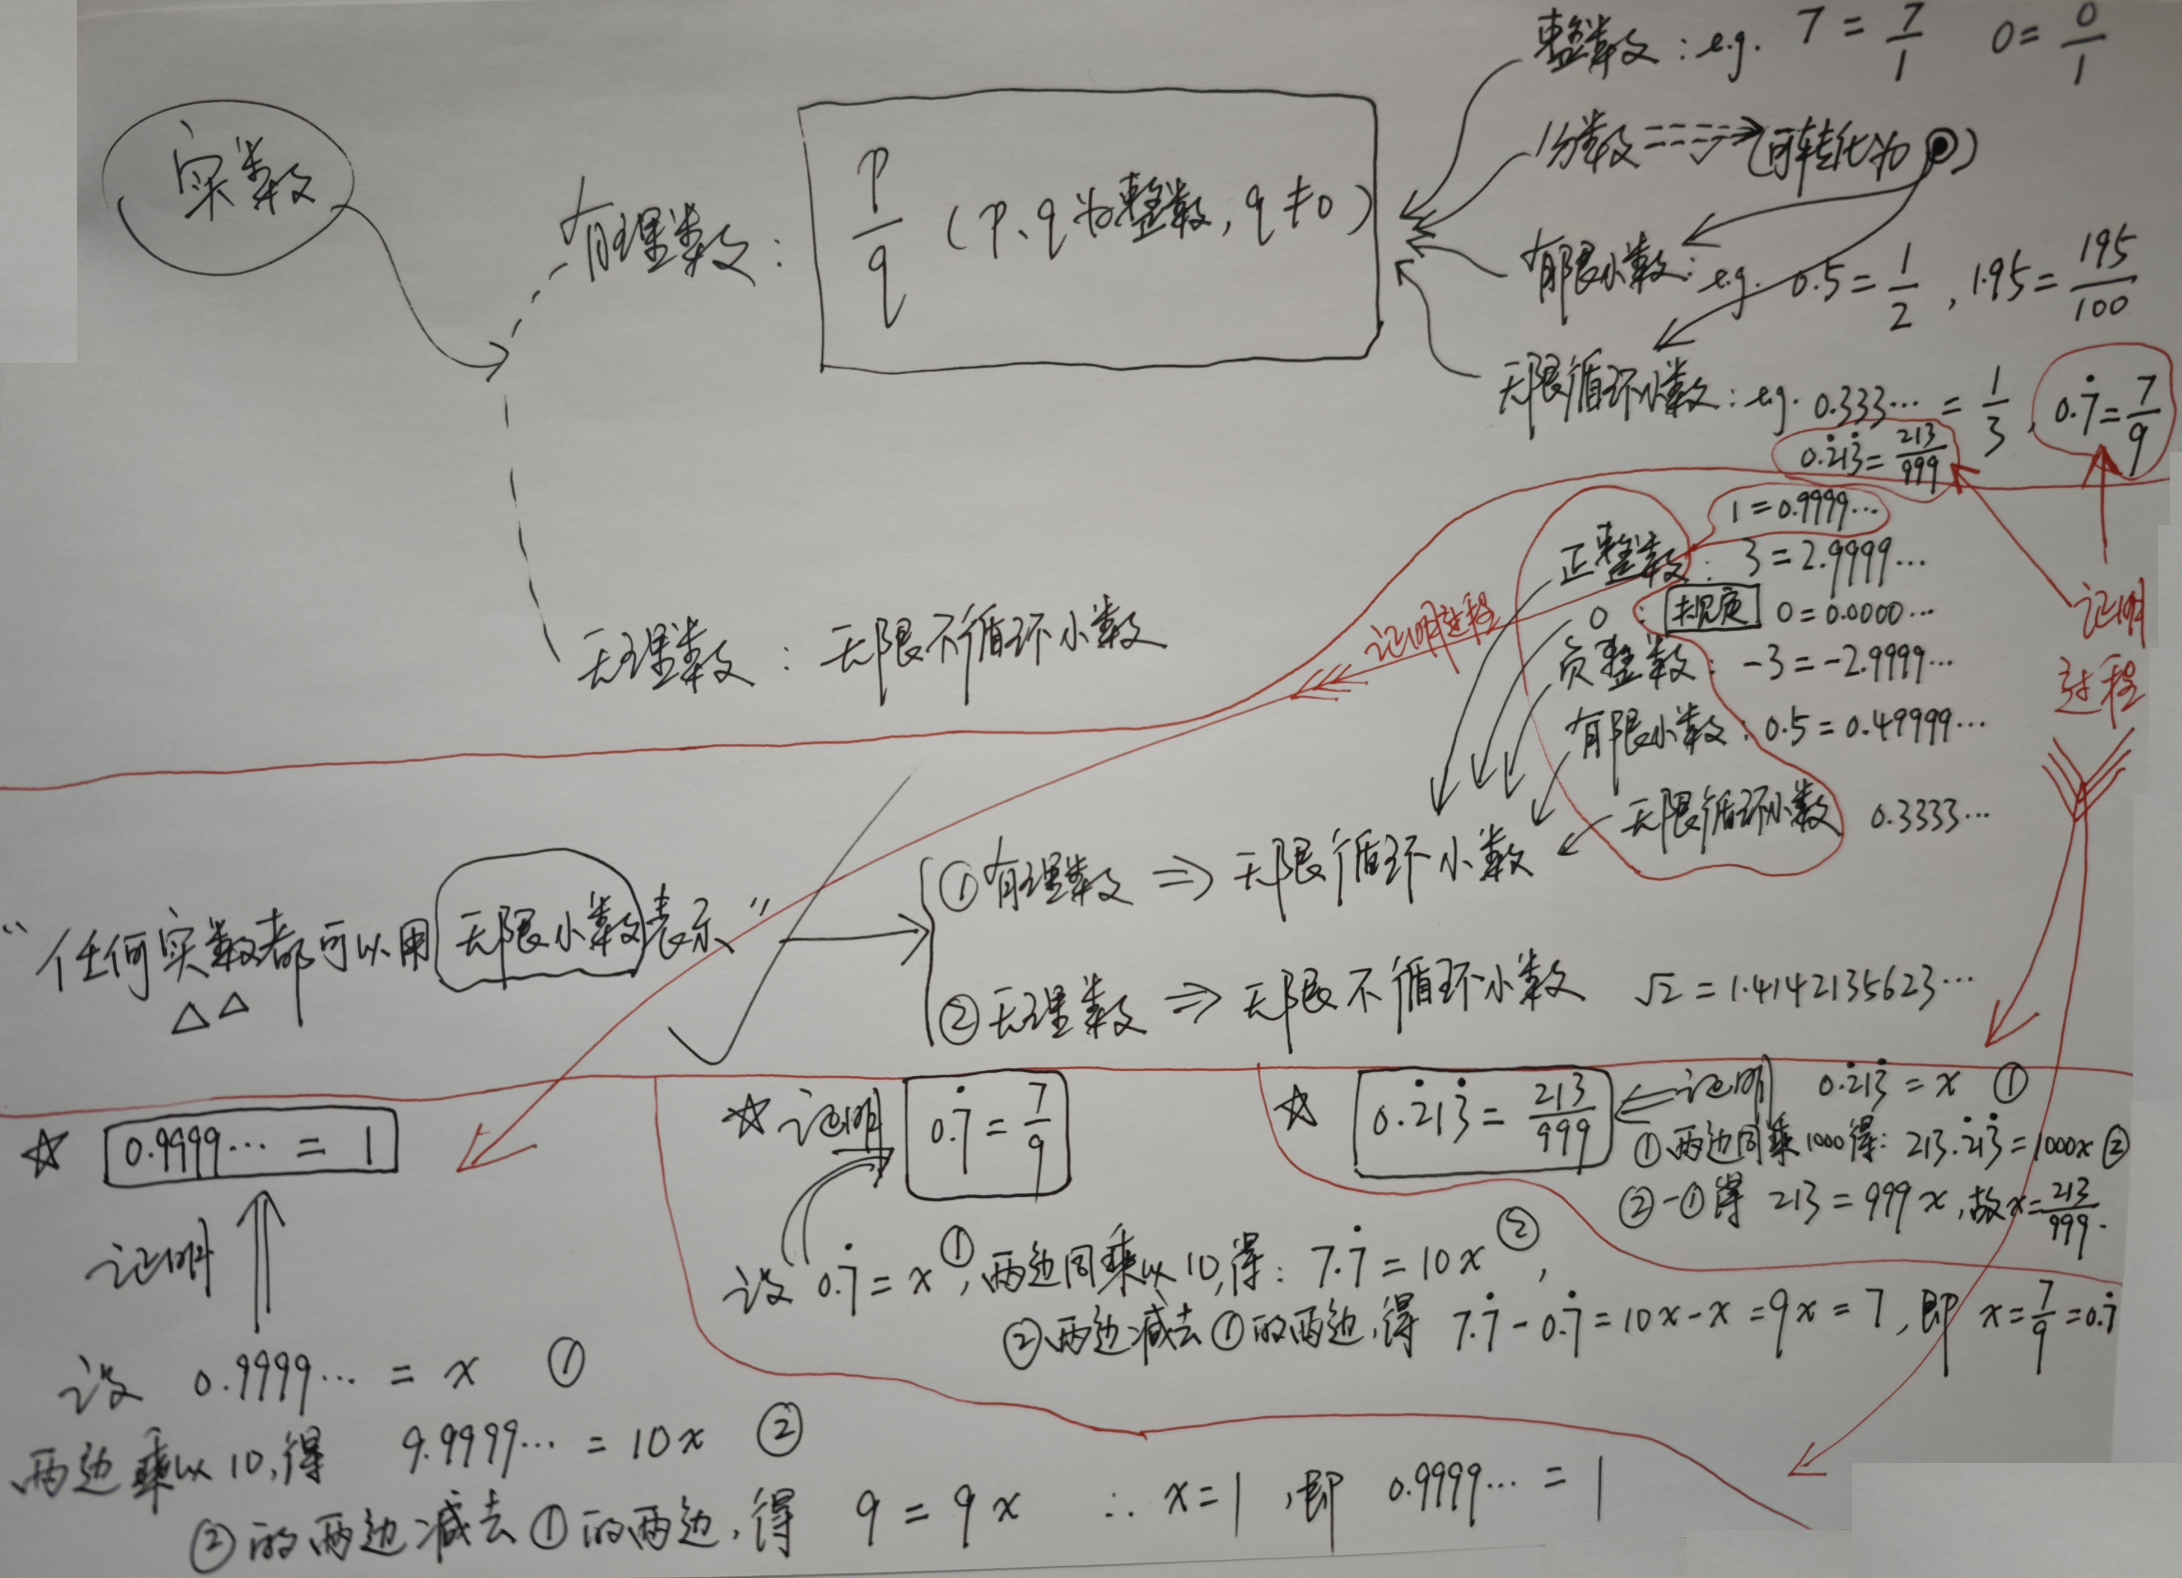 实数
有理数: p/q (p、q为整数, q≠0)
整数: e.g. 7 = 7/1 0 = 0/1
分数 ⇢ (可转化为 ◉)
有限小数: e.g. 0.5 = 1/2 , 1.95 = 195/100
无限循环小数: e.g. 0.333… = 1/3 , 0.7̇ = 7/9
0.2̇13̇ = 213/999
证明
过程
无理数: 无限不循环小数
1 = 0.9999…
正整数: 3 = 2.9999…
0: 规定 0 = 0.0000…
负整数: -3 = -2.9999…
有限小数: 0.5 = 0.49999…
无限循环小数 0.3333…
证明过程
“任何实数都可以用无限小数表示”
△△
①有理数 ⇒ 无限循环小数
②无理数 ⇒ 无限不循环小数 √2 = 1.4142135623…
☆ 0.9999… = 1
证明
设 0.9999… = x ①
两边乘以10,得 9.9999… = 10x ②
②的两边减去①的两边,得 9 = 9x ∴ x = 1 ,即 0.9999… = 1
☆证明 0.7̇ = 7/9
设 0.7̇ = x ①, 两边同乘以10,得: 7.7̇ = 10x ②,
②两边减去①的两边,得 7.7̇ - 0.7̇ = 10x - x = 9x = 7 , 即 x = 7/9 = 0.7̇
☆ 0.2̇13̇ = 213/999 ⇐ 证明 0.2̇13̇ = x ①
①两边同乘1000得: 213.2̇13̇ = 1000x ②
②-①得 213 = 999x, 故x = 213/999.